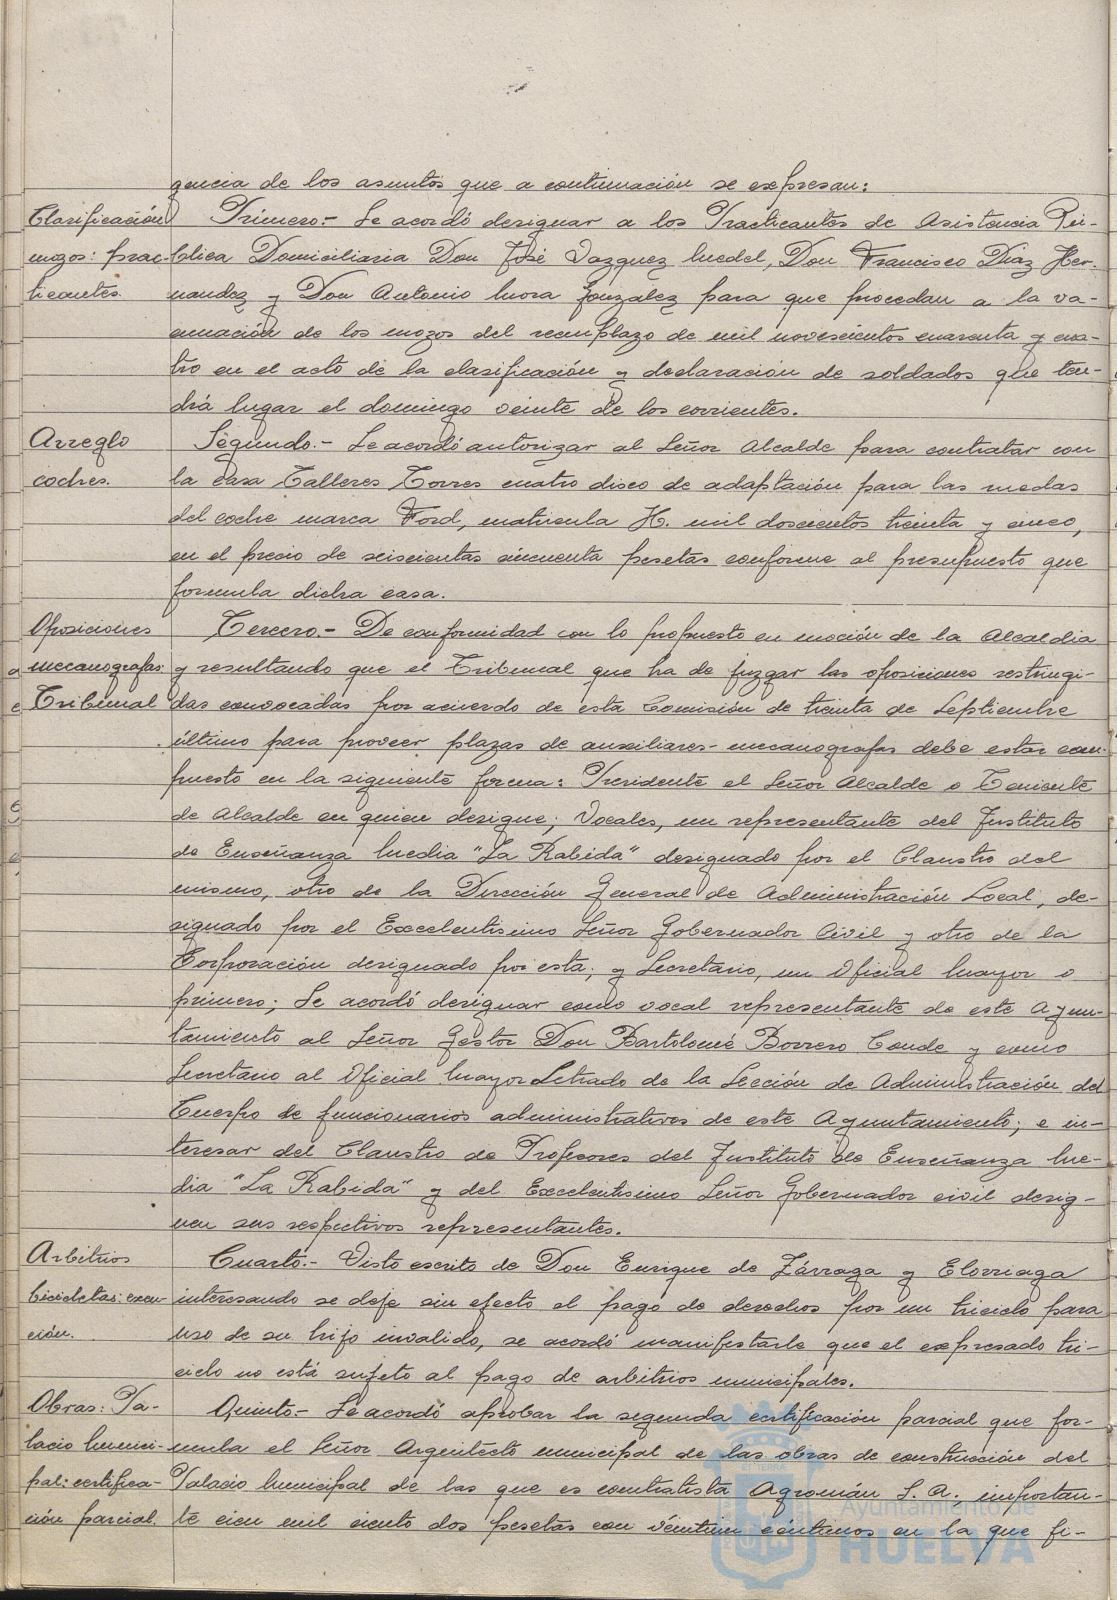 gencia de los asuntos que a continuación se expresan:
Clasificación mozos: practicantes.
Primero.- Se acordó designar a los Practicantes de Asistencia Pú-
blica Domiciliaria Don José Vazquez Medel, Don Francisco Díaz Her-
nandez y Don Antonio Mora Gonzalez para que procedan a la va-
cunación de los mozos del reemplazo de mil novescientos cuarenta y cua-
tro en el acto de la clasificación y declaración de soldados que ten-
drá lugar el domingo veinte de los corrientes.
Arreglo
coches.
Segundo.- Se acordó autorizar al Señor Alcalde para contratar con
la casa Talleres Torres cuatro disco de adaptación para las ruedas
del coche marca Ford, matricula H. mil doscientos treinta y cinco,
en el precio de seiscientas cincuenta pesetas conforme al presupuesto que
formula dicha casa.
Oposiciones
a mecanografas:
Tribunal
Tercero.- De conformidad con lo propuesto en moción de la Alcaldia
y resultando que el Tribunal que ha de juzgar las oposiciones restringi-
das convocadas por acuerdo de esta Comisión de treinta de Septiembre
último para proveer plazas de auxiliares-mecanografas debe estar com-
puesto en la siguiente forma: Presidente el Señor Alcalde o Teniente
de Alcalde en quien designe; Vocales, un representante del Instituto
de Enseñanza Media "La Rabida" designado por el Claustro del
mismo, otro de la Dirección General de Administración Local, de-
signado por el Excelentisimo Señor Gobernador Civil y otro de la
Corporación designado por esta; y Secretario, un Oficial Mayor o
primero; Se acordó designar como vocal representante de este Ayun-
tamiento al Señor Gestor Don Bartolomé Borrero Conde y como
Secretario al Oficial Mayor Letrado de la Sección de Administración del
Cuerpo de funcionarios administrativos de este Ayuntamiento; e in-
teresar del Claustro de Profesores del Instituto de Enseñanza Me-
dia "La Rabida" y del Excelentisimo Señor Gobernador civil desig-
nen sus respectivos representantes.
Arbitrios
bicicletas: exen-
ción.
Cuarto.- Visto escrito de Don Enrique de Zárraga y Elorriaga
interesando se deje sin efecto el pago de derechos por un triciclo para
uso de su hijo invalido, se acordó manifestarle que el expresado tri-
ciclo no está sujeto al pago de arbitrios municipales.
Obras: Pa-
lacio Munici-
pal: certifica-
ción parcial.
Quinto.- Se acordó aprobar la segunda certificación parcial que for-
mula el Señor Arquitecto municipal de las obras de construcción del
Palacio Municipal de las que es contratista Agromán S. A. importan-
te cien mil ciento dos pesetas con veintiun céntimos en la que fi-
Ayuntamiento de
HUELVA